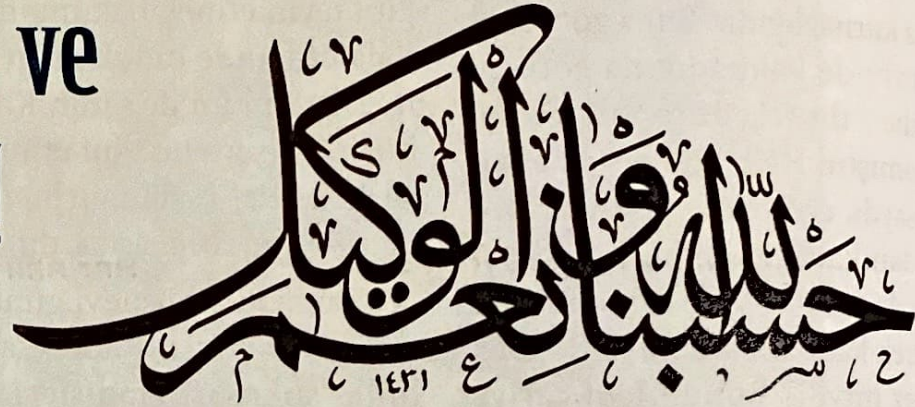 ve
حسبنا الله ونعم الوكيل
١٤٣١